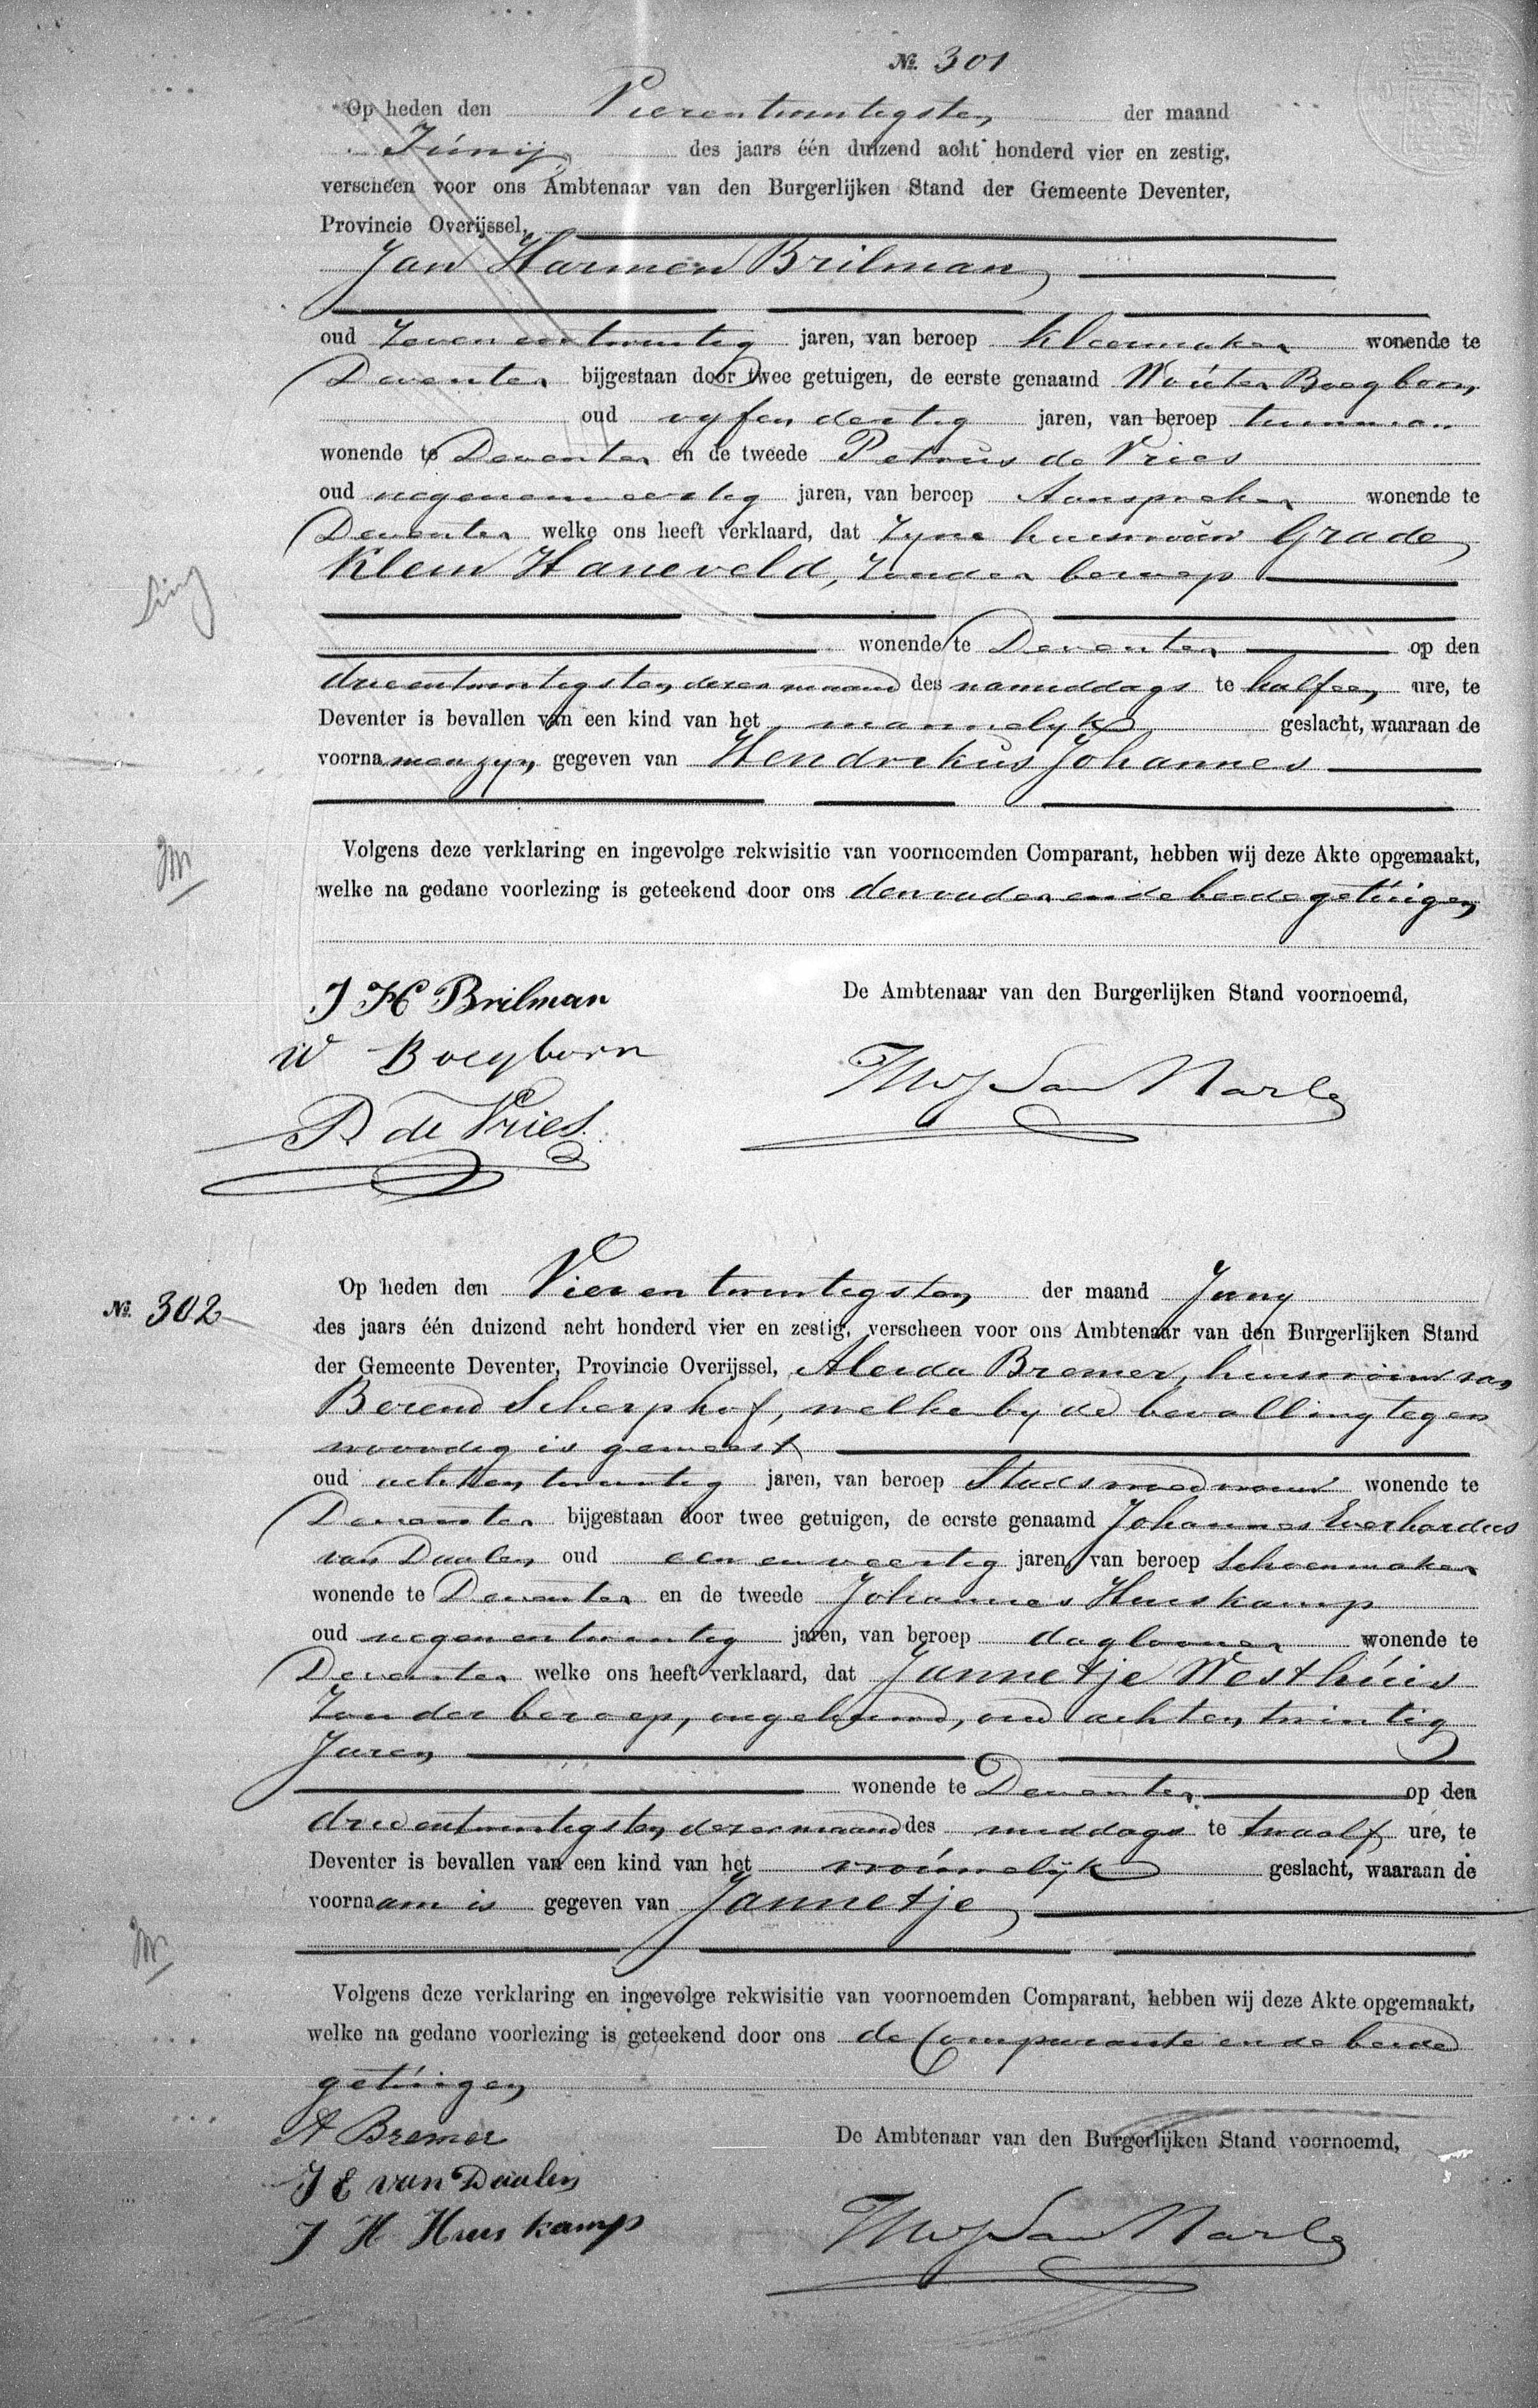 №. 301
Op heden den Vierentwintigsten der maand
Junij des jaars één duizend acht honderd vier en zestig,
verscheen voor ons Ambtenaar van den Burgerlijken Stand der Gemeente Deventer,
Provincie Overijssel,
Jan Harmen Brilman
oud Zevenentwintig jaren, van beroep Kleermaker wonende te
Deventer bijgestaan door twee getuigen, de eerste genaamd Wouter Boegborn
oud vyfendertig jaren, van beroep tuinman
wonende te Deventer en de tweede Petrus de Vries
oud negenenveertig jaren, van beroep Aanspreker wonende te
Deventer welke ons heeft verklaard, dat Zyne huisvrouw Grade
Klein Haneveld, Zonder beroep
ling
wonende te Deventer op den
drieentwintigsten dezer maand des namiddags te half een ure, te
Deventer is bevallen van een kind van het mannelyk geslacht, waaraan de
voornamen zyn gegeven van Hendrikus Johannes
Volgens deze verklaring en ingevolge rekwisitie van voornoemden Comparant, hebben wij deze Akte opgemaakt,
welke na gedane voorlezing is geteekend door ons den vader en de beide getuigen
J H Brilman De Ambtenaar van den Burgerlijken Stand voornoemd,
W Boegborn
P. de Vries
№. 302 Op heden den Vierentwintigsten der maand Juny
des jaars één duizend acht honderd vier en zestig, verscheen voor ons Ambtenaar van den Burgerlijken Stand
der Gemeente Deventer, Provincie Overijssel, Aleida Bremer, huisvrouw van
Berend Scherphof, welke by de bevalling tegen
woordig is geweest
oud achtentwintig jaren, van beroep Stadsvroedvrouw wonende te
Deventer bijgestaan door twee getuigen, de eerste genaamd Johannes Everhardus
van Daalen oud een en veertig jaren, van beroep Schoenmaker
wonende te Deventer en de tweede Johannes Huiskamp
oud negenentwintig jaren, van beroep daglooner wonende te
Deventer welke ons heeft verklaard, dat Jannetje Westhuis
Zonder beroep, ongehuwd, oud achtentwintig
Jaren
wonende te Deventer op den
drieentwintigsten dezer maand des middags te twaalf ure, te
Deventer is bevallen van een kind van het vrouwelijk geslacht, waaraan de
voornaam is gegeven van Jannetje
Volgens deze verklaring en ingevolge rekwisitie van voornoemden Comparant, hebben wij deze Akte opgemaakt,
welke na gedane voorlezing is geteekend door ons de Comparante en de beide
getuigen
A Bremer De Ambtenaar van den Burgerlijken Stand voornoemd,
J E van Daalen
J H Huiskamp